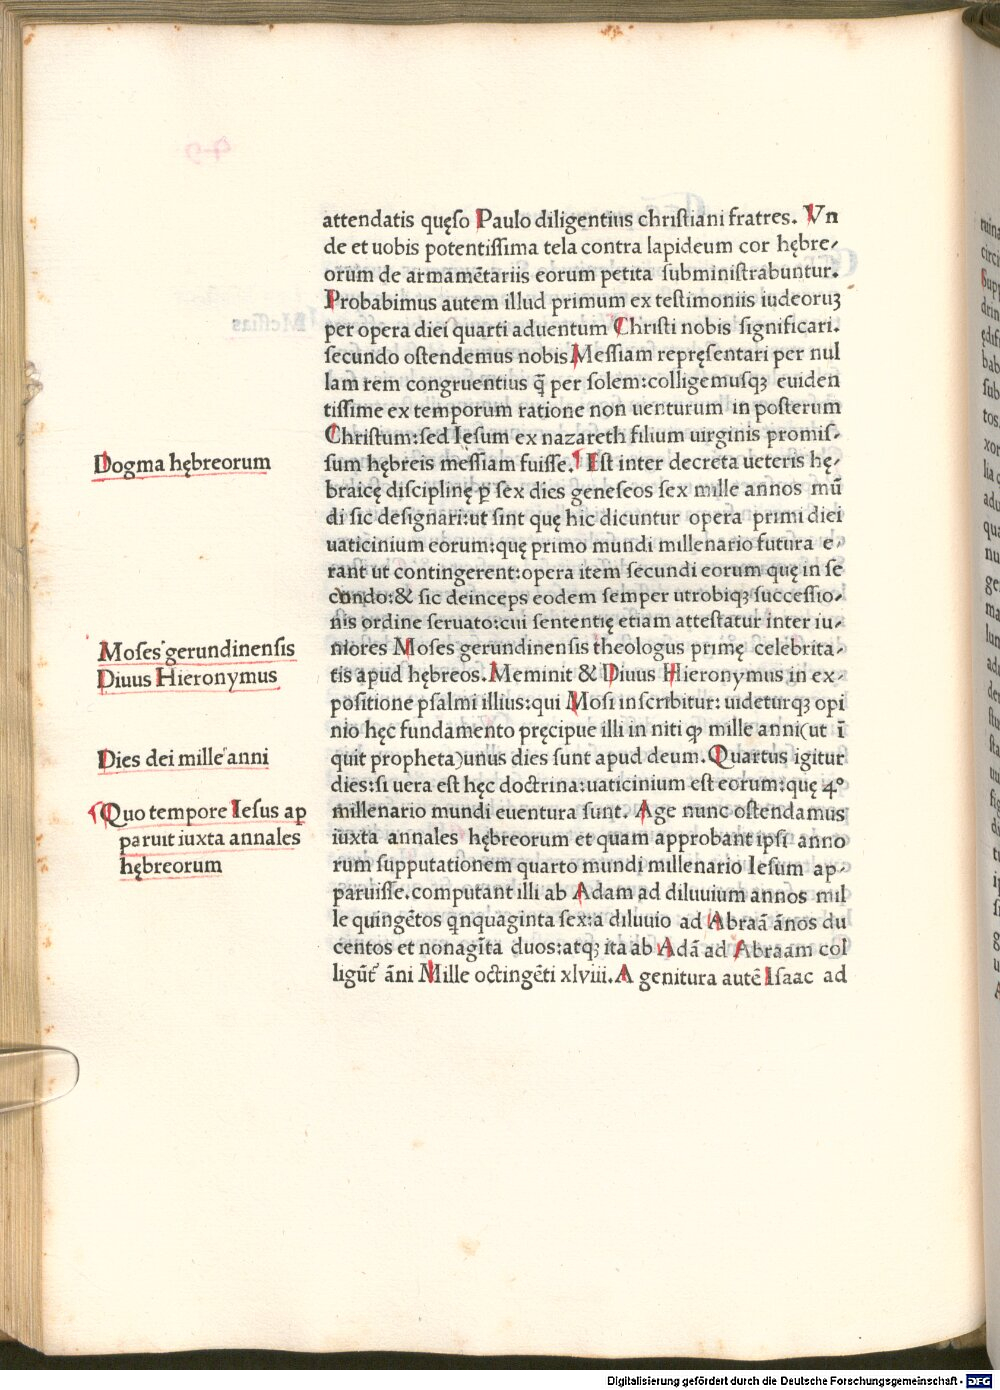 attendatis quęſo Paulo diligentius chriſtiani fratres. Vn
de et uobis potentiſſima tela contra lapideum cor hębre-
orum de armamētariis eorum petita ſubminiſtrabuntur.
Probabimus autem illud primum ex teſtimoniis iudeoruꝫ
per opera diei quarti aduentum Chriſti nobis ſignificari.
ſecundo oſtendemus nobis Meſſiam repręſentari per nul
lam rem congruentius q̃ per ſolem:colligemuſqꝫ euiden
tiſſime ex temporum ratione non uenturum in poſterum
Chriſtum:ſed Ieſum ex nazareth filium uirginis promiſ-
ſum hębreis meſſiam fuiſſe. ¶ Eſt inter decreta ueteris hę-
braicę diſciplinę ꝑ ſex dies geneſeos ſex mille annos mū
di ſic deſignari:ut ſint quę hic dicuntur opera primi diei
uaticinium eorum:quę primo mundi millenario futura e-
rant ut contingerent:opera item ſecundi eorum quę in ſe
cundo:& ſic deinceps eodem ſemper utrobiqꝫ ſucceſſio-
nis ordine ſeruato:cui ſententię etiam atteſtatur inter iu-
niores Moſes gerundinenſis theologus primę celebrita-
tis apud hębreos. Meminit & Diuus Hieronymus in ex-
poſitione pſalmi illius:qui Moſi inſcribitur: uideturqꝫ opi
nio hęc fundamento pręcipue illi in niti ꝙ mille anni(ut ī
quit propheta)unus dies ſunt apud deum. Quartus igitur
dies:ſi uera eſt hęc doctrina:uaticinium eſt eorum:quę 4°
millenario mundi euentura ſunt. Age nunc oſtendamus
iuxta annales hębreorum et quam approbant ipſi anno
rum ſupputationem quarto mundi millenario Ieſum ap-
paruiſſe.computant illi ab Adam ad diluuium annos mil
le quingētos qnquaginta ſex:a diluuio ad Abraā ānos du
centos et nonagīta duos:atqꝫ ita ab Adā ad Abraam col
ligūt᷑ āni Mille octingēti xlviii. A genitura autē Iſaac ad
Dogma hębreorum
Moſes gerundinenſis
Diuus Hieronymus
Dies dei mille anni
¶ Quo tempore Ieſus ap
paruit iuxta annales
hębreorum
Digitalisierung gefördert durch die Deutsche Forschungsgemeinschaft - DFG